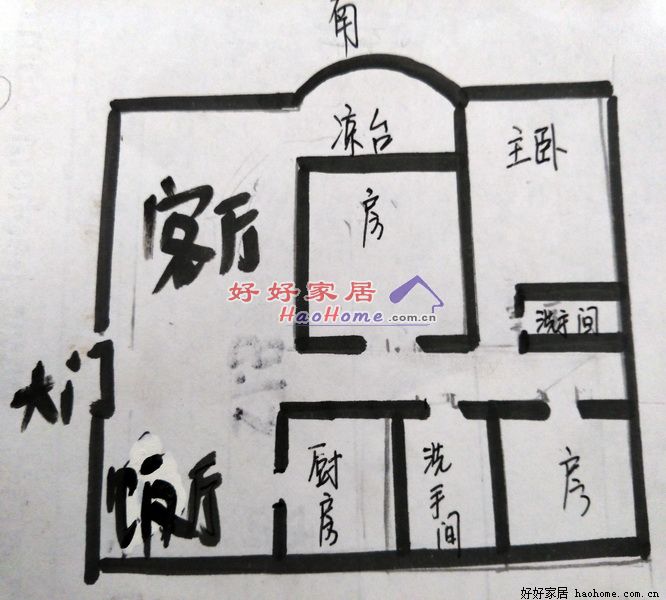 角
凉台
主卧
房
客厅
好好家居
HaoHome.com.cn
洗手间
大门
厅
厨房
洗手间
房
好好家居 haohome.com.cn